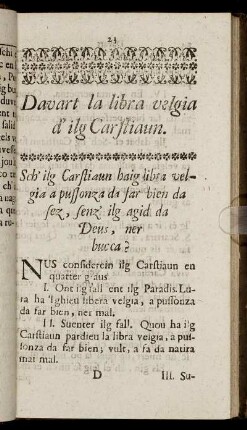 23
Davart la libra velgia
d'ilg Carstiaun.
Sch' ilg Carstiaun haig libra vel-
gia a pussonza da far bien da
sez, senz' ilg agid da
Deus, ner
bucca?
NUS considerein ilg Carstiaun en
quatter g'aus
I. Ont ilg fall ent ilg Paradis. Lu-
ra ha 'lghieu libera velgia, a pussonza
da far bien, ner mal.
II. Suenter ilg fall. Quou ha ilg
Carstiaun pardieu la libra velgia, a pus-
sonza da far bien; vult, a fa da natira
mai mal.
D III. Su-